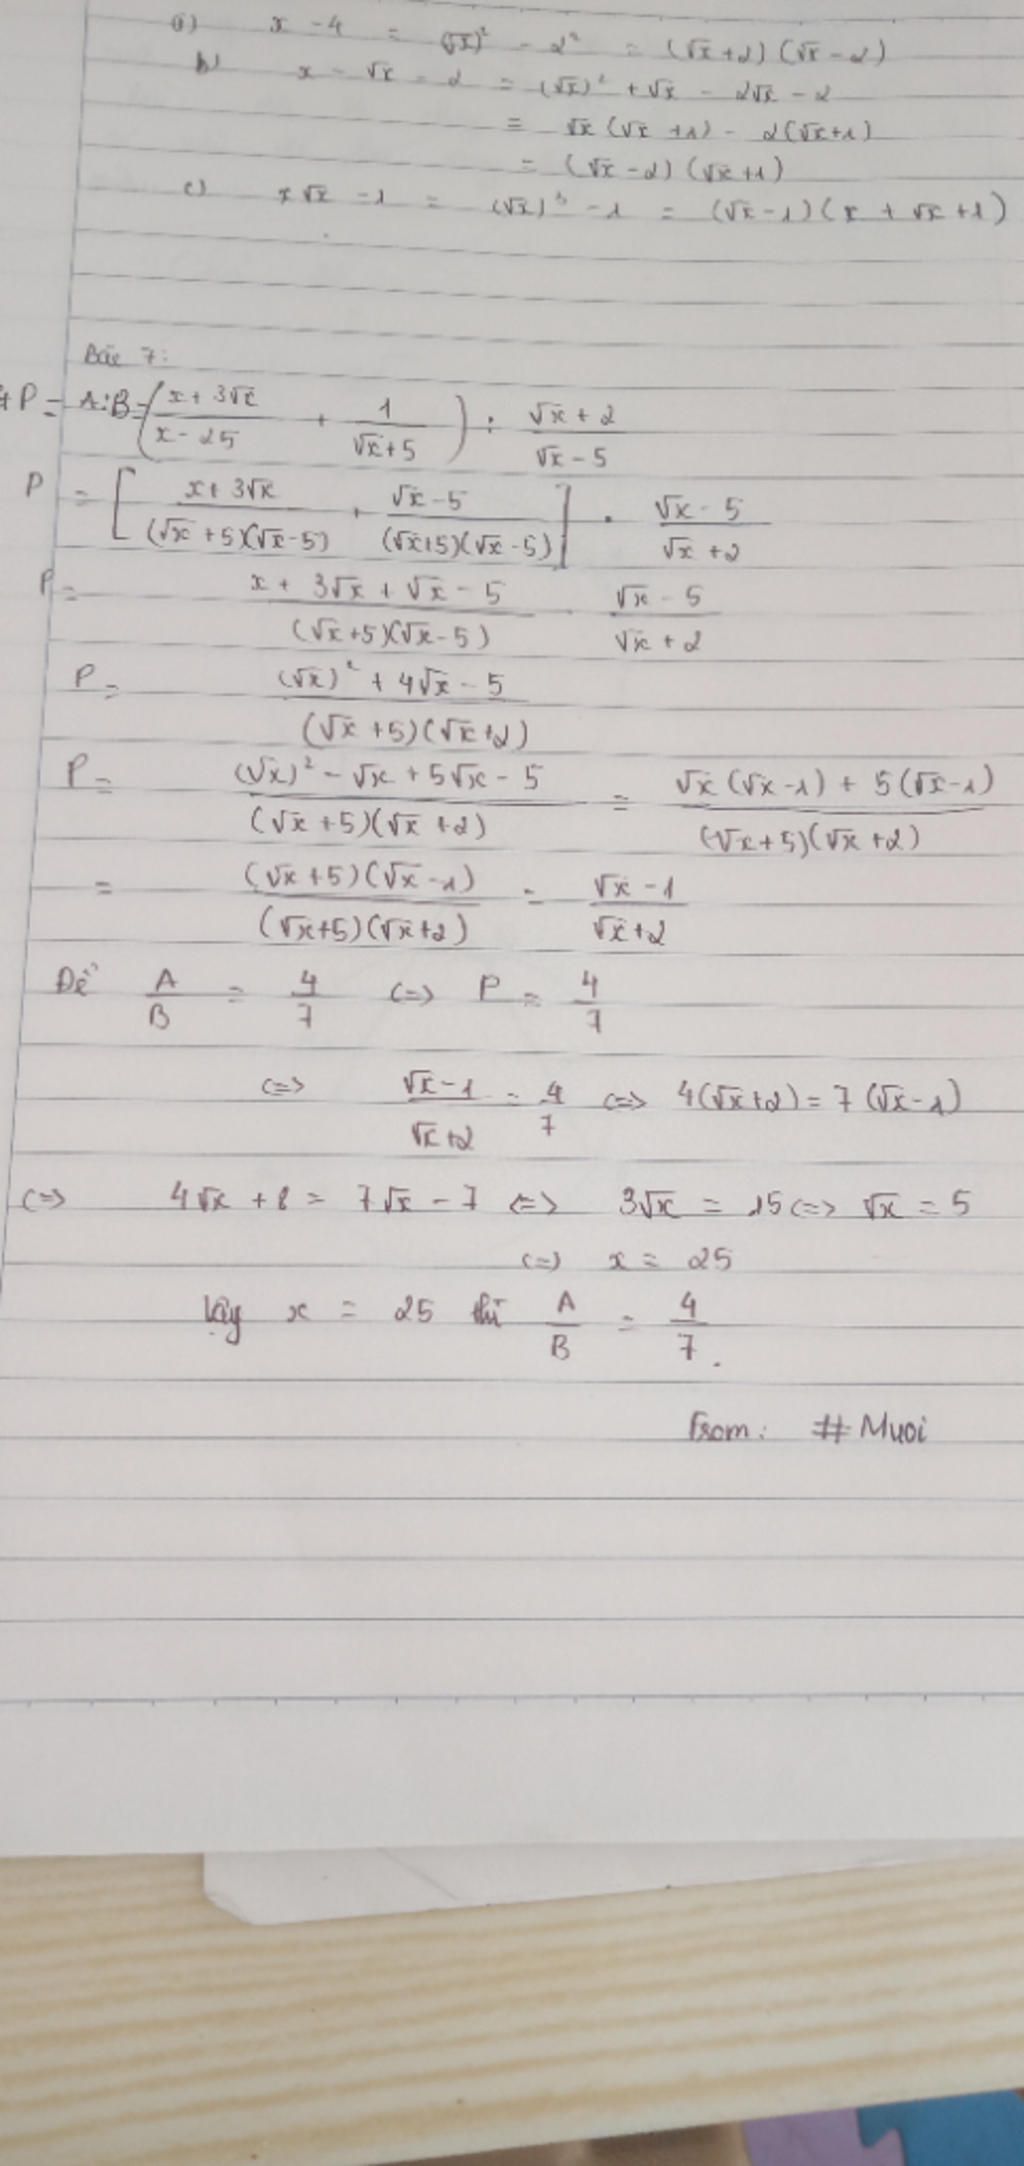 a) x - 4 = (√x)² - 2² = (√x+2)(√x-2)
b) x - √x - 2 = (√x)² + √x - 2√x - 2
= √x(√x+1) - 2(√x+1)
= (√x-2)(√x+1)
c) x√x - 1 = (√x)³ - 1 = (√x-1)(x + √x + 1)
Bài 7:
P = A:B = (x+3√x / x-25 + 1 / √x+5) : √x+2 / √x-5
P = [x+3√x / (√x+5)(√x-5) + √x-5 / (√x+5)(√x-5)] . √x-5 / √x+2
P = x + 3√x + √x - 5 / (√x+5)(√x-5) . √x-5 / √x+2
P = (√x)² + 4√x - 5 / (√x+5)(√x+2)
P = (√x)² - √x + 5√x - 5 / (√x+5)(√x+2) = √x(√x-1) + 5(√x-1) / (√x+5)(√x+2)
= (√x+5)(√x-1) / (√x+5)(√x+2) = √x-1 / √x+2
Để A/B = 4/7 <=> P = 4/7
<=> √x-1 / √x+2 = 4/7 <=> 4(√x+2) = 7(√x-1)
<=> 4√x + 8 = 7√x - 7 <=> 3√x = 15 <=> √x = 5
<=> x = 25
Vậy x = 25 thì A/B = 4/7.
From: #Muoi